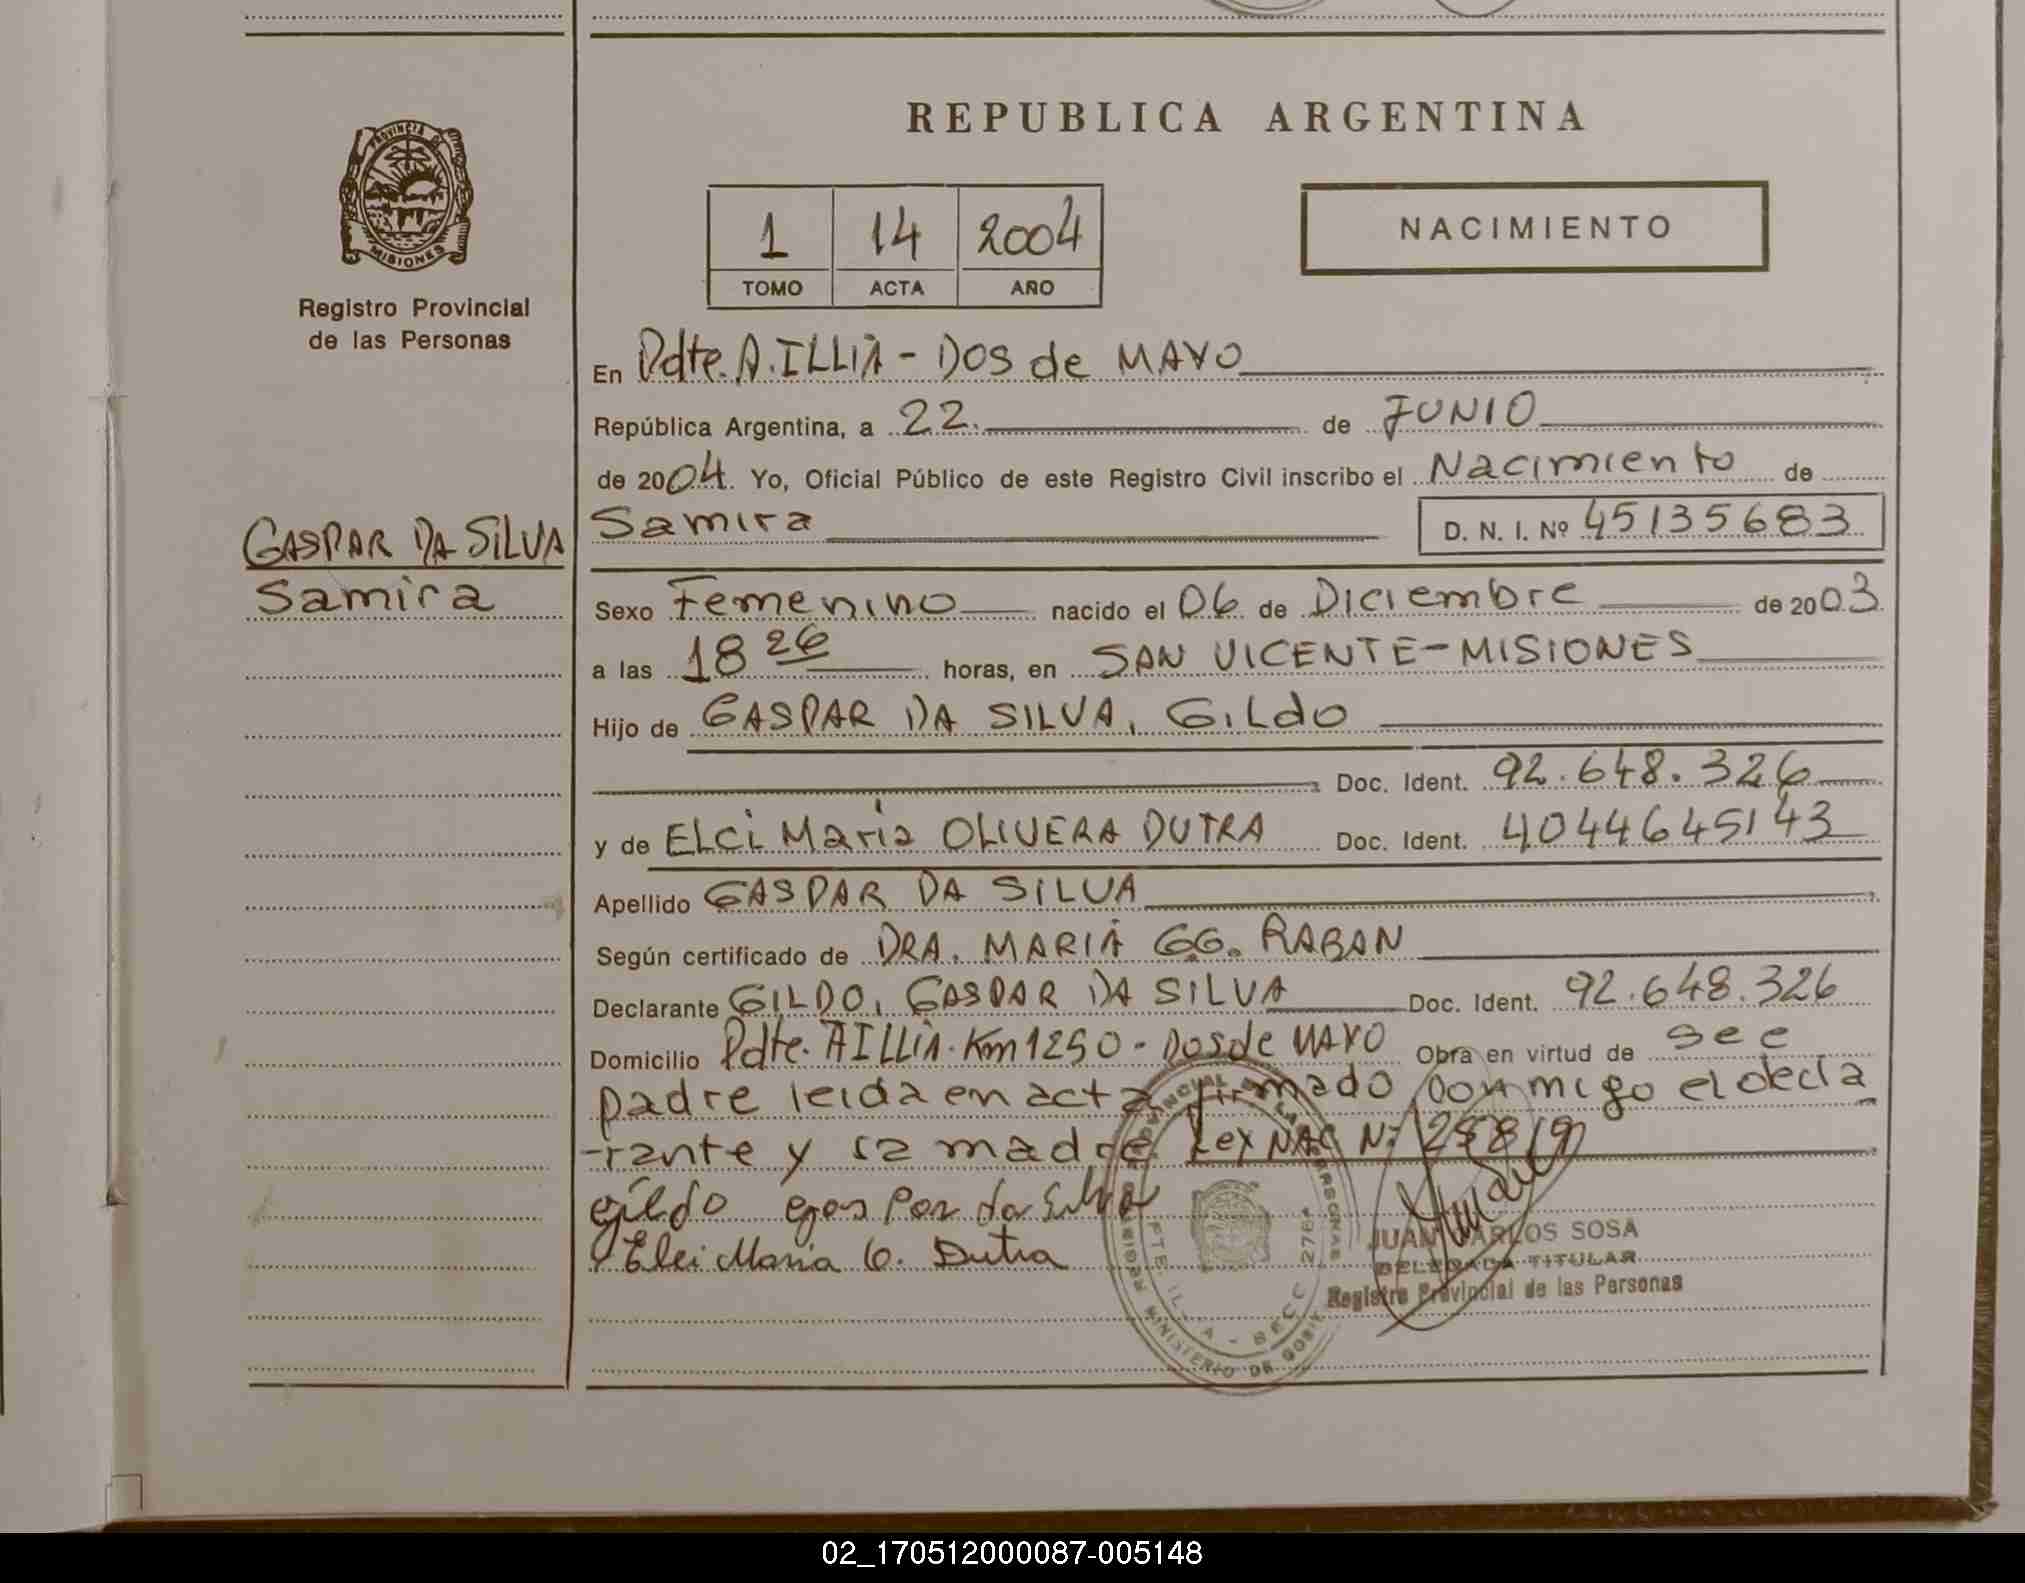 PROVINCIA DE
MISIONES
Registro Provincial
de las Personas
GASPAR DA SILVA
Samira
REPUBLICA ARGENTINA
1 14 2004
TOMO ACTA AÑO
NACIMIENTO
En Pdte. A. ILLIA - DOS de MAYO
República Argentina, a 22 de JUNIO
de 2004. Yo, Oficial Público de este Registro Civil inscribo el Nacimiento de
Samira D. N. I. Nº 45135683
Sexo Femenino nacido el 06 de Diciembre de 2003
a las 18 26 horas, en SAN VICENTE-MISIONES
Hijo de GASPAR DA SILVA, GiLdO
Doc. Ident. 92.648.326
y de ELCi Maria OLIVERA DUTRA Doc. Ident. 4044645143
Apellido GASPAR DA SILVA
Según certificado de DRA. MARIA GG. RABAN
Declarante GILDO, GASPAR DA SILVA Doc. Ident. 92.648.326
Domicilio Pdte. A ILLIA. Km 1250 - Dos de MAYO Obra en virtud de see
padre leida en acta firmado conmigo el decla
-rante y sa madre Ley NAC N: 25819
gildo gas par da Silva
Elci Maria O. Dutra
JUAN CARLOS SOSA
DELEGADA TITULAR
Registro Provincial de las Personas
02_170512000087-005148